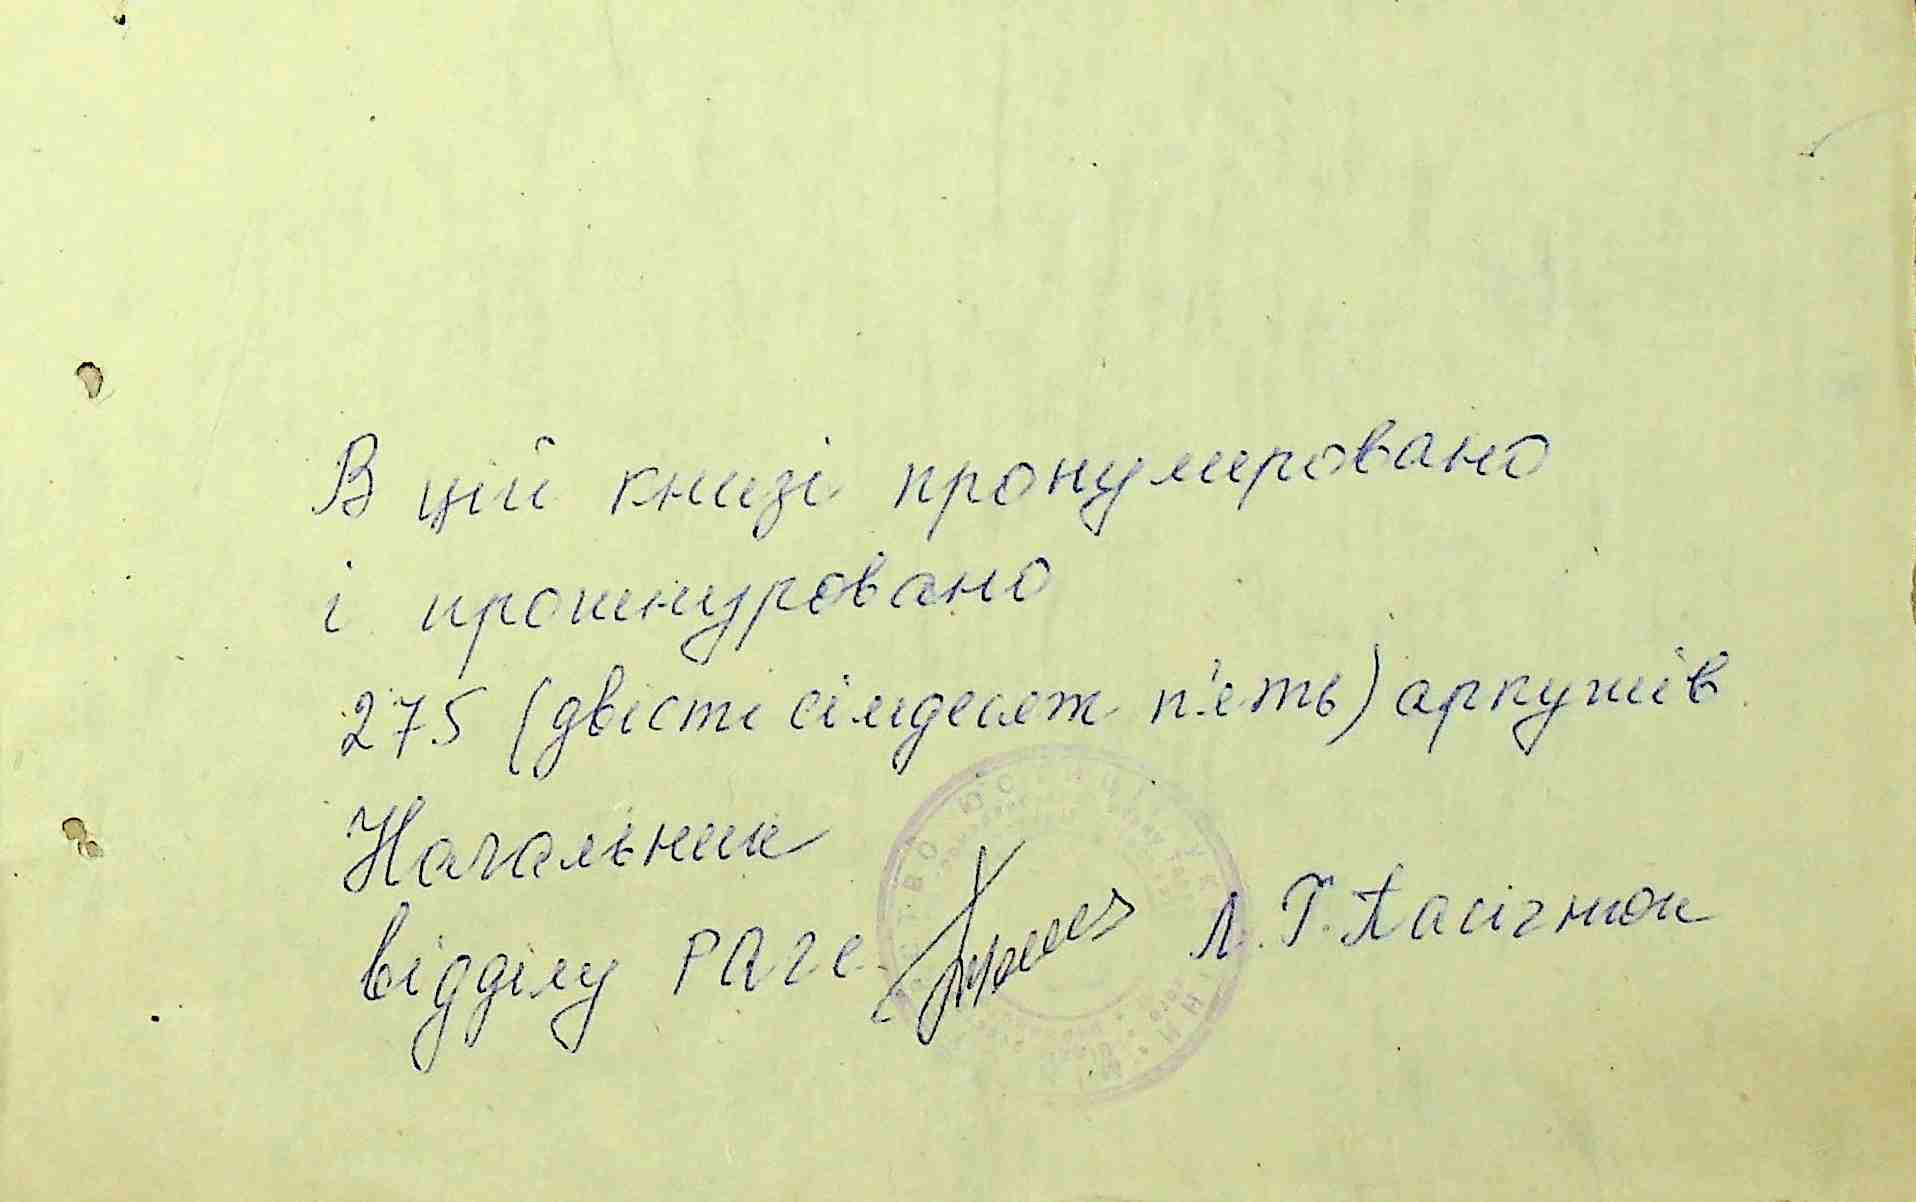 В цій книзі пронумеровано
і прошнуровано
275 (двісті сімдесят п'ять) аркушів
Начальник
відділу РАГС Л. Г. Пасічнюк